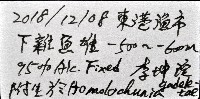 2018/12/08 東港漁市
下雜魚堆 -500~-600m
95% Alc. Fixed 李坤瑄
附生於 Homolochunia gadaletae